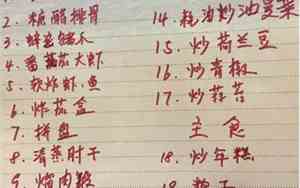 2. 糖醋排骨
3. 鲜
4. 番茄大虾
5. 软炸虾、鱼
6. 炸茄盒
7. 拼盘
8. 清蒸肘子
9. 焰肉
14. 耗油炒油麦菜
15. 炒荷兰豆
16. 炒青椒
17. 炒蒜苔
主食
18. 炒年糕